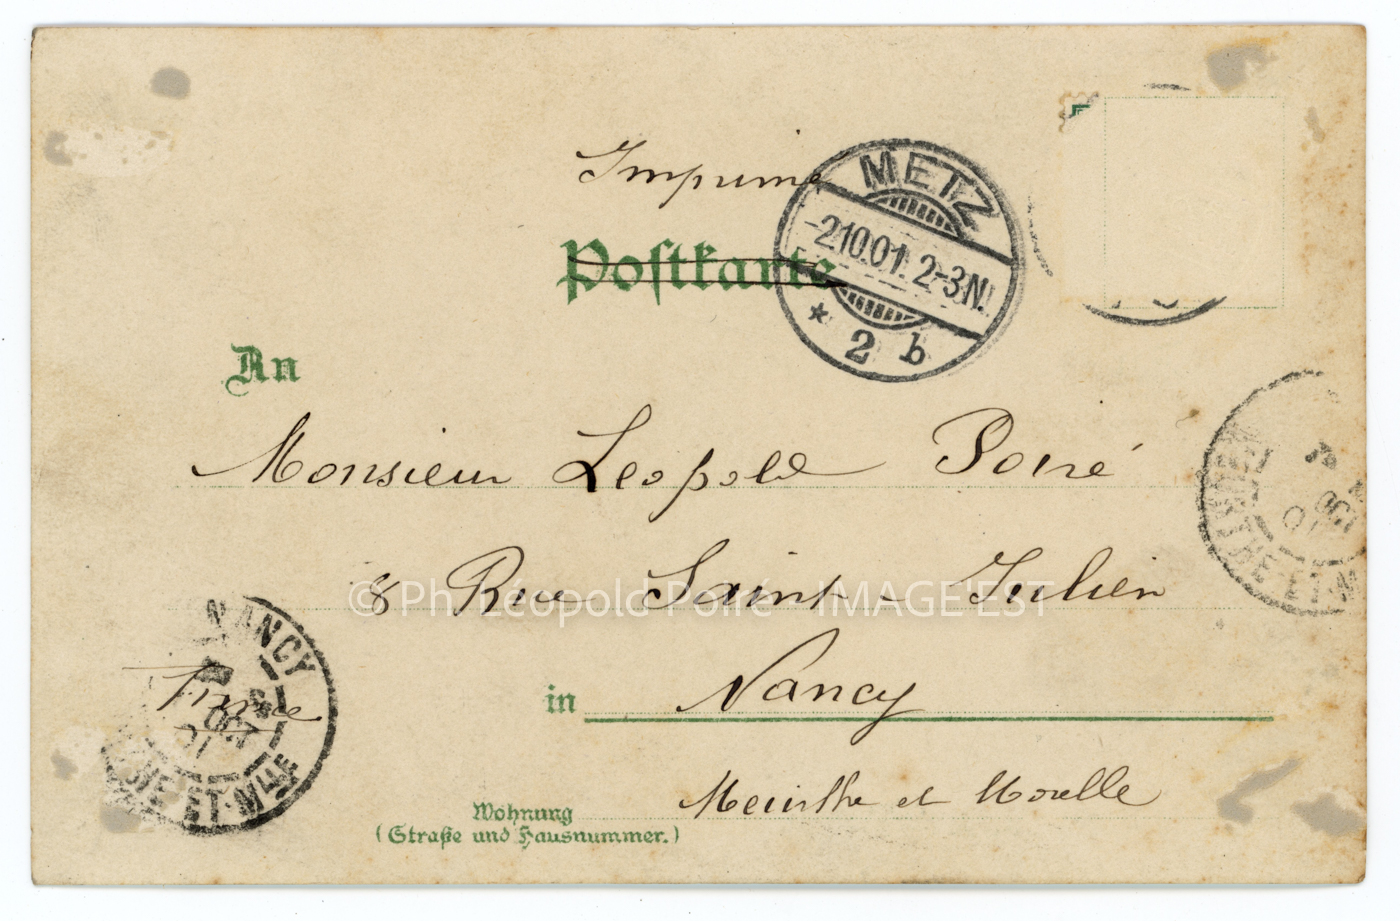 Imprimé
METZ
-2.10.01. 2-3N.
* 2 b
Postkarte
An
Monsieur Léopold Poiré
8 Rue Saint-Julien
© Ph. Léopold Poiré - IMAGE'EST
in Nancy
Meurthe et Moselle
Wohnung
(Straße und Hausnummer.)
France
NANCY
OCT
01
ET-MLLE
MEURTHE ET-M
OCT
01